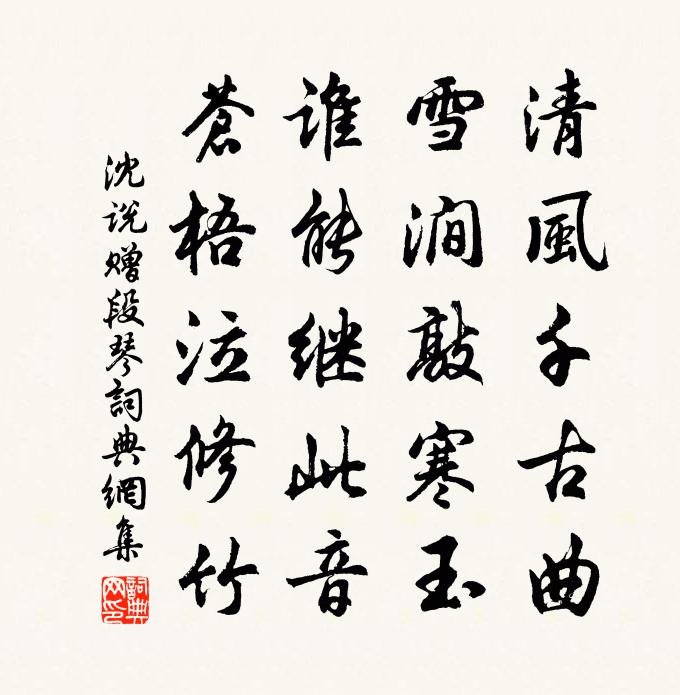 清風千古曲
雪澗敲寒玉
誰能继此音
蒼梧泣修竹
沈说赠段琴詞典網集
詞典網印